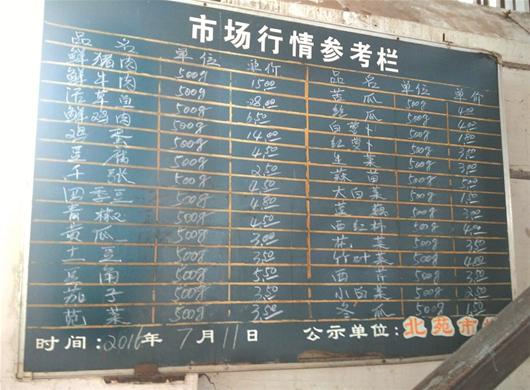 市场行情参考栏
品名 单位 单价 品名 单位 单价
鲜猪肉 500g 15.00 黄瓜 500g
鲜牛肉 500g 28.00 丝瓜 500g
活草鱼 500g 6.50 白萝卜 500g
鲜鸡肉 500g 14.00 红萝卜 500g
鸡蛋 500g 4.50 生菜 500g
豆腐 500g 2.50 蒜苗 500g
千张 500g 4.50 大白菜 500g 1.50
四季豆 500g 莲藕 500g
青椒 500g 4.50 西红柿 500g
黄瓜 500g 3.00 花菜 500g 3.50
土豆 500g 竹叶菜 500g
豆角 500g 5.50 西芹 500g 3.50
茄子 500g 3.50 小白菜 500g 2.50
苋菜 500g 3.50 冬瓜 500g 1.50
时间:2016年7月11日 公示单位:北苑市